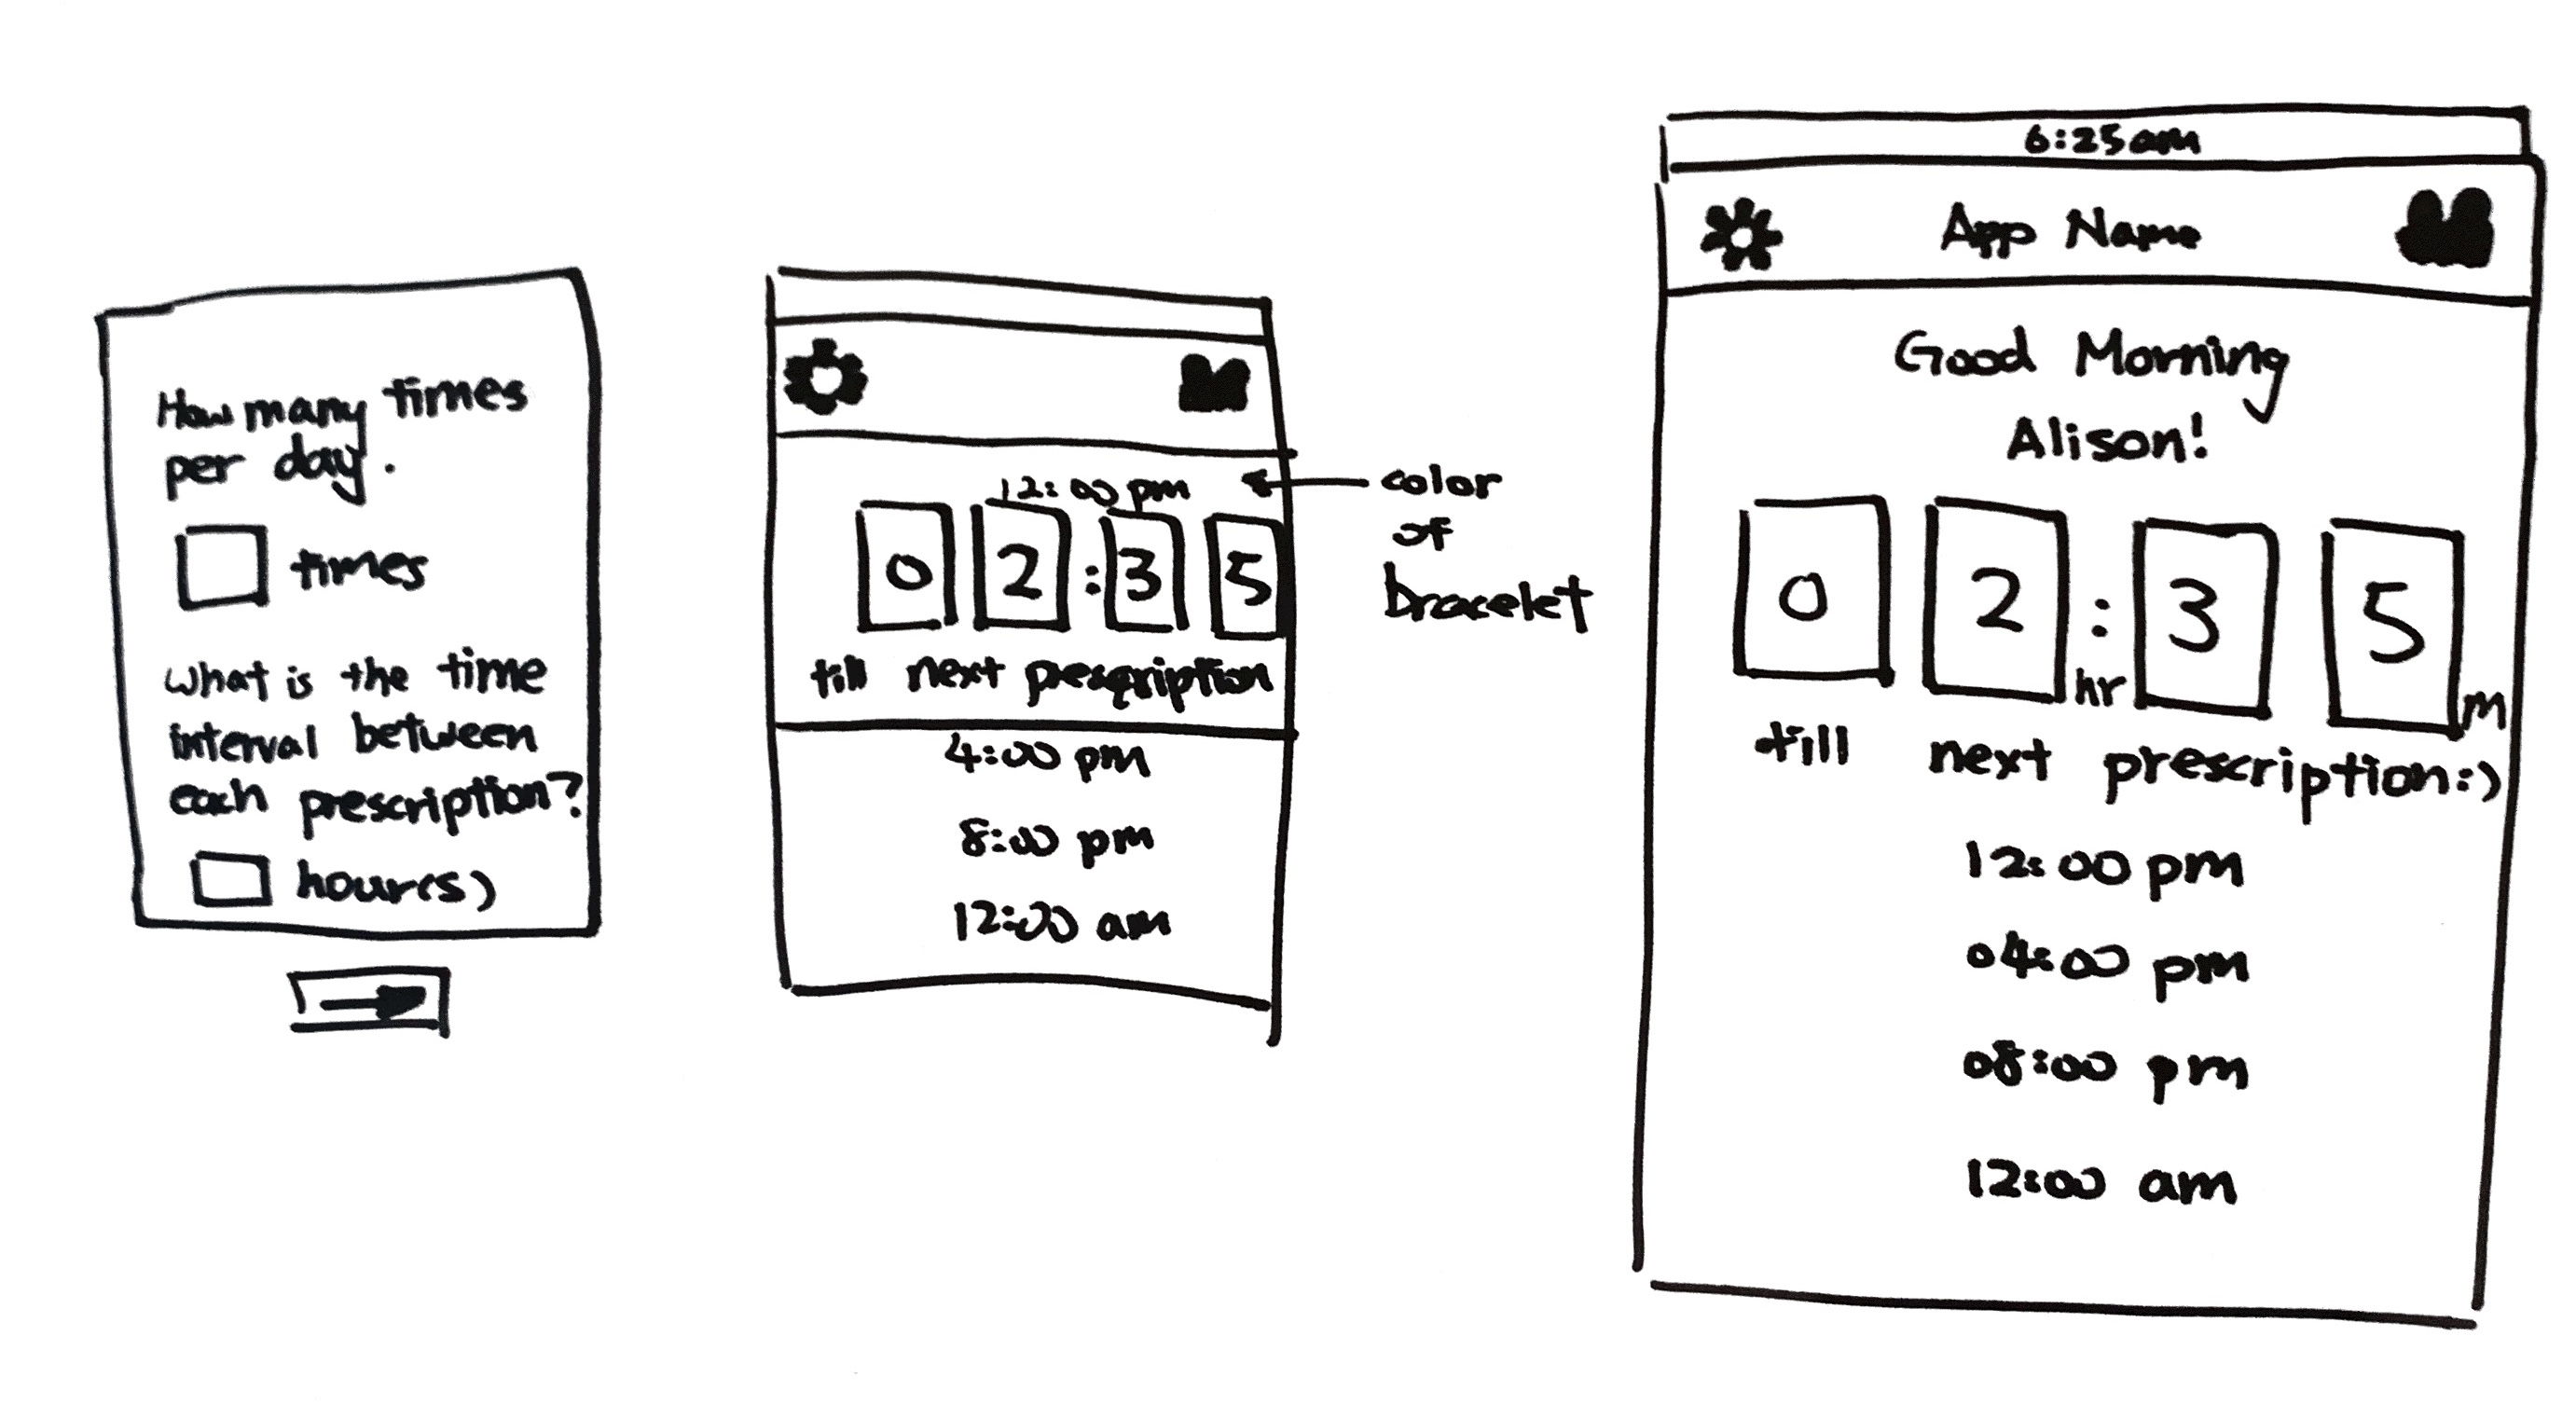 How many times
per day.
times
What is the time
interval between
each prescription?
hour(s)
12:00 pm
0 2 : 3 5
till next prescription
4:00 pm
8:00 pm
12:00 am
color
of
bracelet
6:25am
App Name
Good Morning
Alison!
0 2 hr : 3 5 m
till next prescription:)
12:00 pm
04:00 pm
08:00 pm
12:00 am